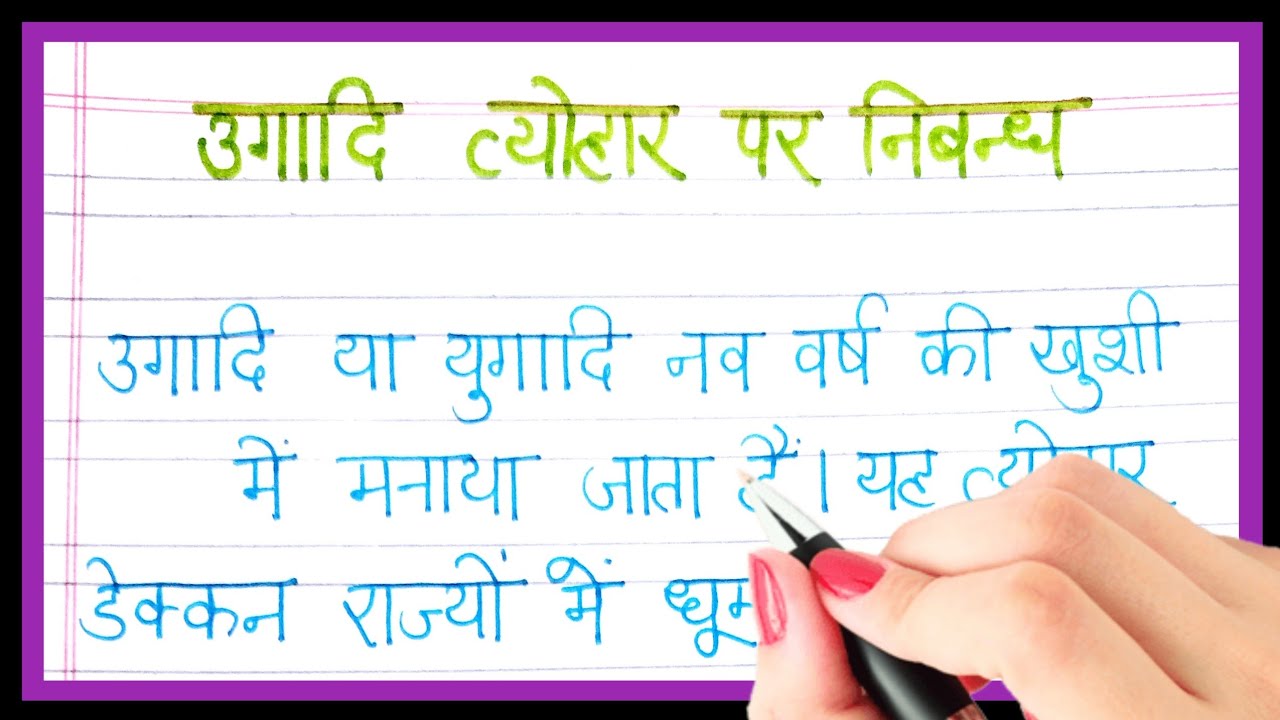 उगादि त्योहार पर निबन्ध
उगादि या युगादि नव वर्ष की खुशी
में मनाया जाता हैं। यह त्योहार
डेक्कन राज्यों में